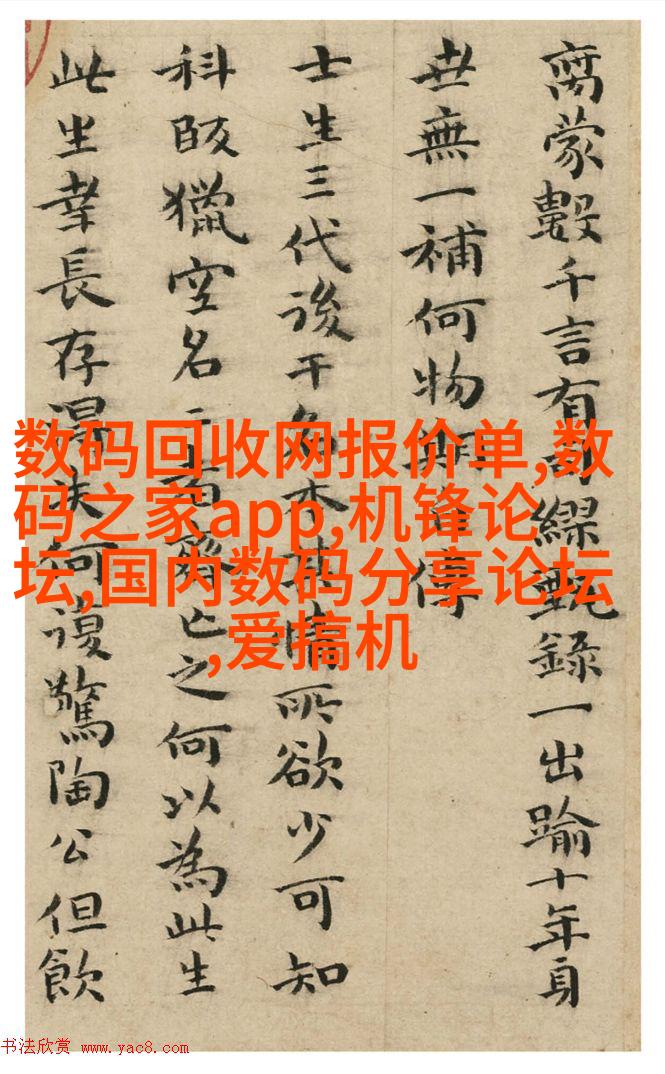 蒙數千言有繆甄錄一出踰十年身
世無一補何物傳
士生三代後干名本其情所欲少可知
科獵空名亡之何以為此生
此生幸長存失何復驚陶公但飲
数码回收网报价单,数
码之家app,机锋论
坛,国内数码分享论坛
,爱搞机
书法欣赏 www.yac8.com